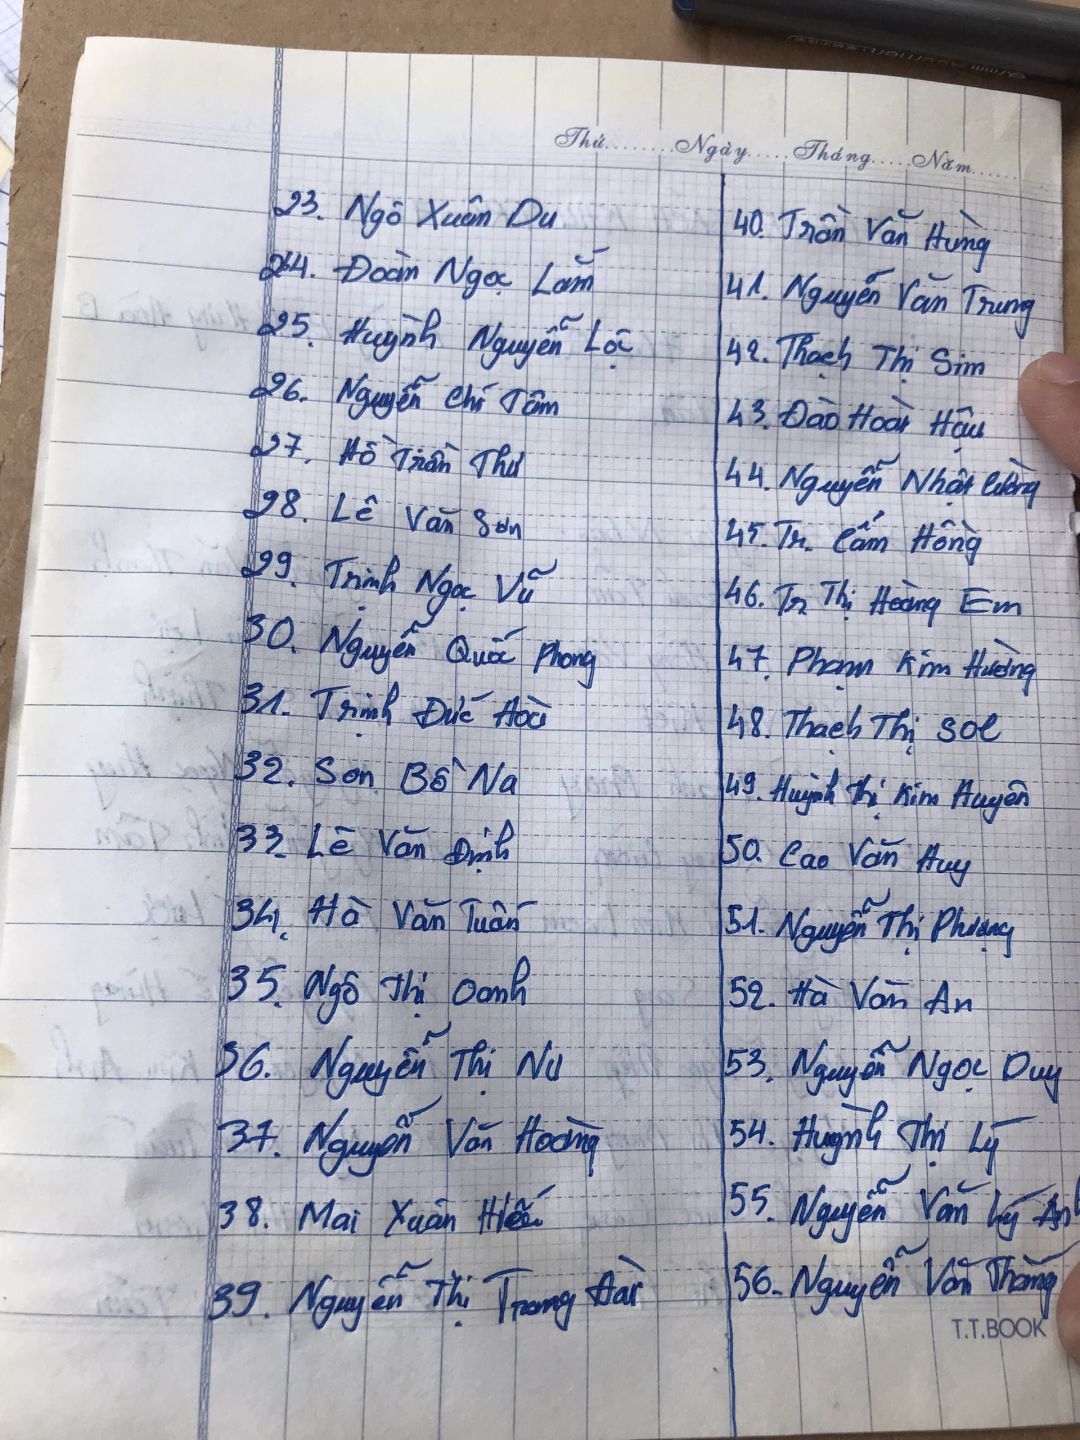 Thứ........Ngày.....Tháng.....Năm.......
23. Ngô Xuân Du
24. Đoàn Ngọc Lắm
25. Huỳnh Nguyễn Lộc
26. Nguyễn Chí Tâm
27. Hồ Trần Thư
28. Lê Văn Sơn
29. Trịnh Ngọc Vũ
30. Nguyễn Quốc Phong
31. Trịnh Đức Hoà
32. Sơn Bồ Na
33. Lê Văn Định
34. Hà Văn Tuấn
35. Ngô Thị Oanh
36. Nguyễn Thị Nu
37. Nguyễn Văn Hoàng
38. Mai Xuân
39. Nguyễn Thị Trang Đài
40. Trần Văn Hưng
41. Nguyễn Văn Trung
42. Thạch Thị Sim
43. Đào Hoài Hậu
44. Nguyễn Nhật Cường
45. Tr. Cẩm Hồng
46. Tr Thị Hoàng Em
47. Phạm Kim Hường
48. Thạch Thị Sol
49. Huỳnh Thị Kim Huyên
50. Cao Văn Huy
51. Nguyễn Thị Phượng
52. Hà Văn An
53. Nguyễn Ngọc Duy
54. Huỳnh Thị Lý
55. Nguyễn Văn Lý Anh
56. Nguyễn Văn Thắng
T.T.BOOK